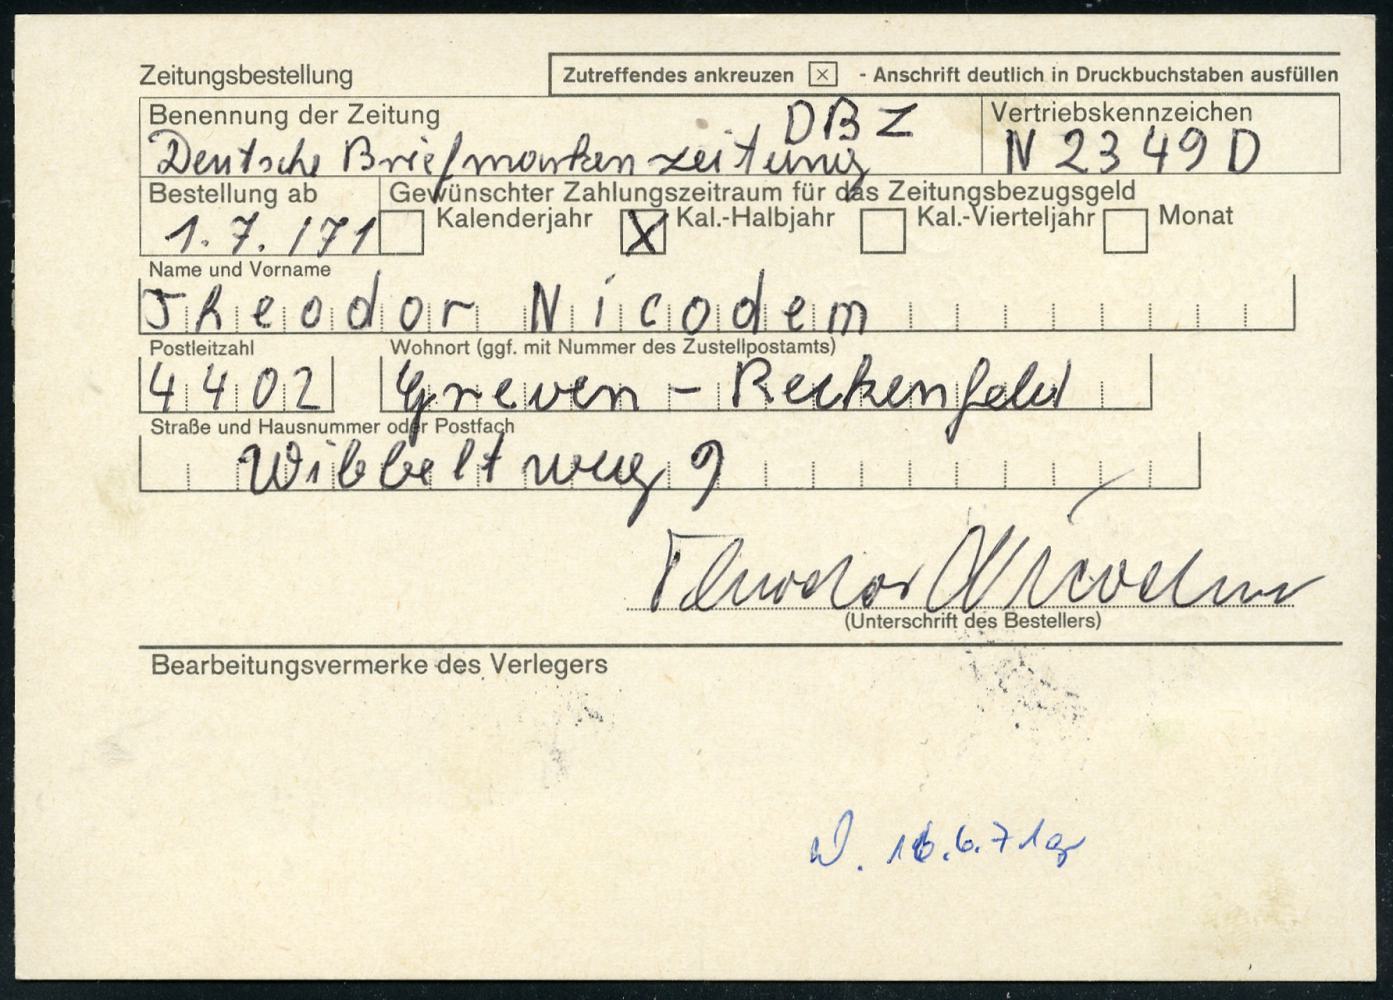 Zeitungsbestellung
Zutreffendes ankreuzen ☒ - Anschrift deutlich in Druckbuchstaben ausfüllen
Benennung der Zeitung
DBZ
Deutsche Briefmarkenzeitung
Vertriebskennzeichen
N 2349 D
Bestellung ab
1.7./71
Gewünschter Zahlungszeitraum für das Zeitungsbezugsgeld
☐ Kalenderjahr ☒ Kal.-Halbjahr ☐ Kal.-Vierteljahr ☐ Monat
Name und Vorname
Theodor Nicodem
Postleitzahl
4402
Wohnort (ggf. mit Nummer des Zustellpostamts)
Greven - Reckenfeld
Straße und Hausnummer oder Postfach
Wibbeltweg 9
Theodor Nicodem
(Unterschrift des Bestellers)
Bearbeitungsvermerke des Verlegers
16.6.71